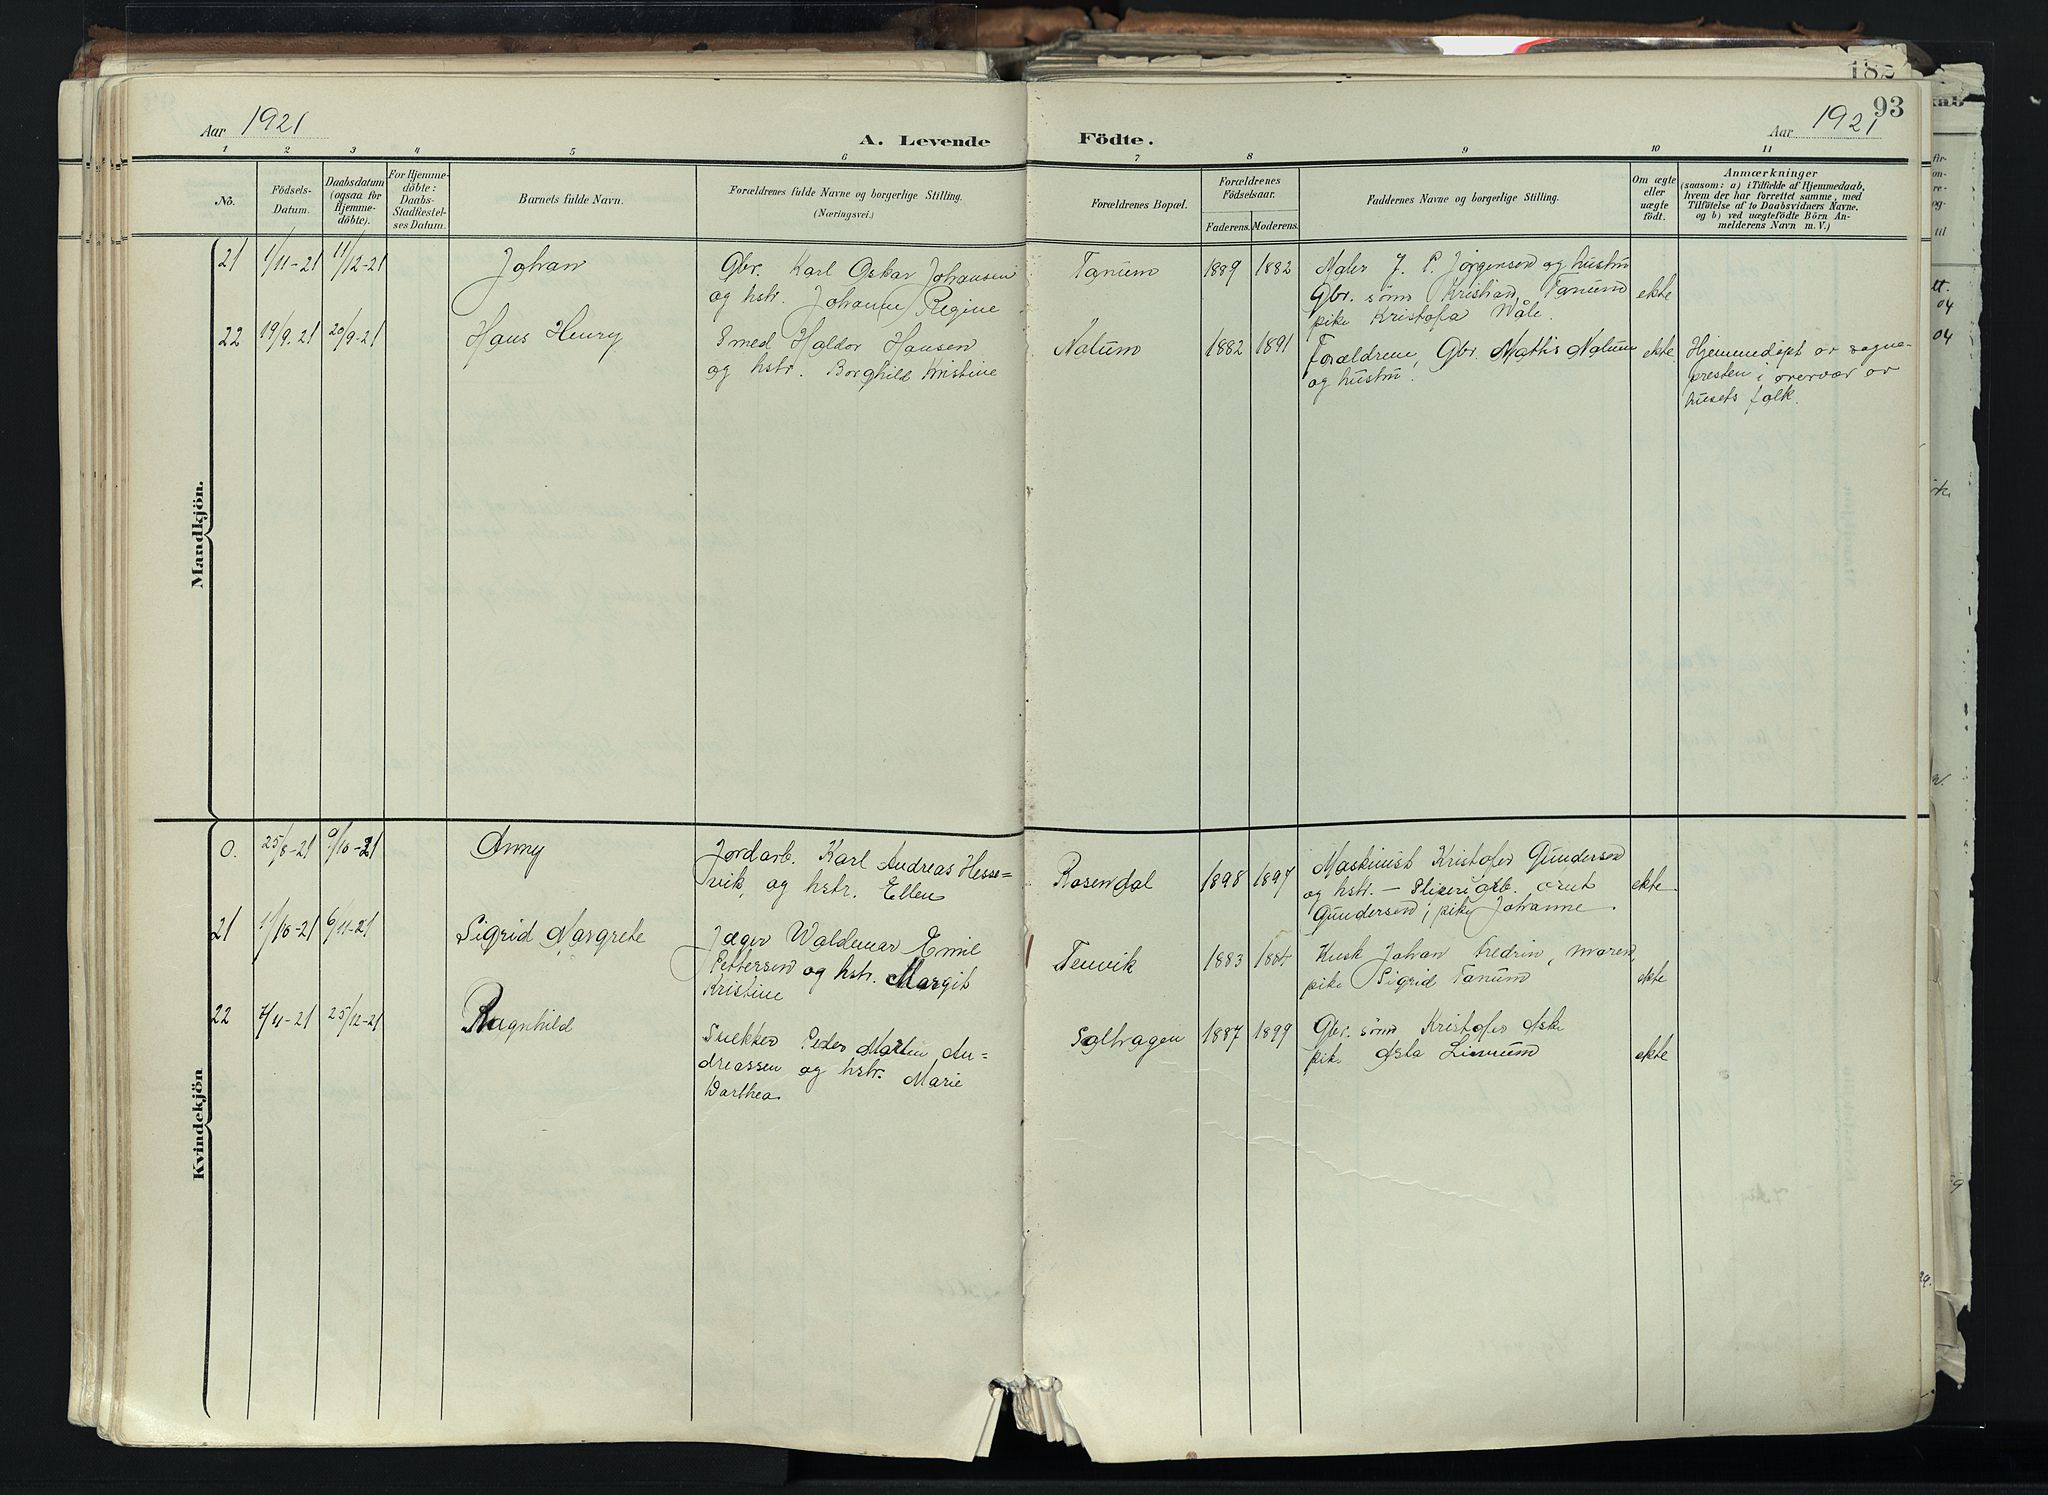 182
93
Aar 1921
A. Levende
Födte.
Aar 1921
1 2 3 4 5 6 7 8 9 10 11
Nô.
Födsels-
Datum.
Daabsdatum
(ogsaa for
Hjemme-
döbte).
For Hjemme-
döbte:
Daabs-
Stadfæstel-
ses Datum.
Barnets fulde Navn.
Forældrenes fulde Navne og borgerlige Stilling.
(Næringsvei.)
Forældrenes Bopæl.
Forældrenes
Födselsaar.
Faderens. Moderens.
Faddernes Navne og borgerlige Stilling.
Om ægte
eller
uægte
födt.
Anmærkninger
(saasom: a) i Tilfælde af Hjemmedaab,
hvem der har forrettet samme, med
Tilföielse af to Daabsvidners Navne.
og b) ved uægtefödte Börn An-
melderens Navn m. V.)
Mandkjön.
21 1/11-21 11/12-21 Johan
Gbr. Karl Oskar Johansen
og hstr. Johanne Regine
Tanum 1889 1882
Maler J. P. Jørgensen og hustru
Gbr. sønn Kristian Tanum
pike Kristofa Wåle.
ekte
22 19/9.21 20/9-21 Hans Henry
Smed Haldor Hansen
og hstr. Borghild Kristine
Nalum 1882 1891
Forældrene, Gbr. Mathis Nalum
og hustru.
ekte
Hjemmedøpt av sogne-
presten i overvær av
husets folk.
Kvindekjön
0. 25/8-21 9/10-21 Anny
Jordarb. Karl Andreas Hesse=
vik, og hstr. Ellen
Rosendal 1898 1897
Maskinist Kristofer Gundersen
og hstr. — arb.
Gundersen; pike Johanne.
ekte
21 1/10-21 6/11-21 Sigrid Margrete
Jæger Waldemar Emil
Pettersen og hstr. Margit
Kristine
Tenvik 1883 1884
Kusk Johan Fredrin, Maren,
pike Sigrid Tanum
ekte
22 7/11-21 25/12-21 Ragnhild
Snekker Peder Martin An=
dreassen og hstr. Marie
Darthea.
Solhagen 1887 1899
Gbr. sønn Kristofer Aske
pike Asta Linnum
ekte